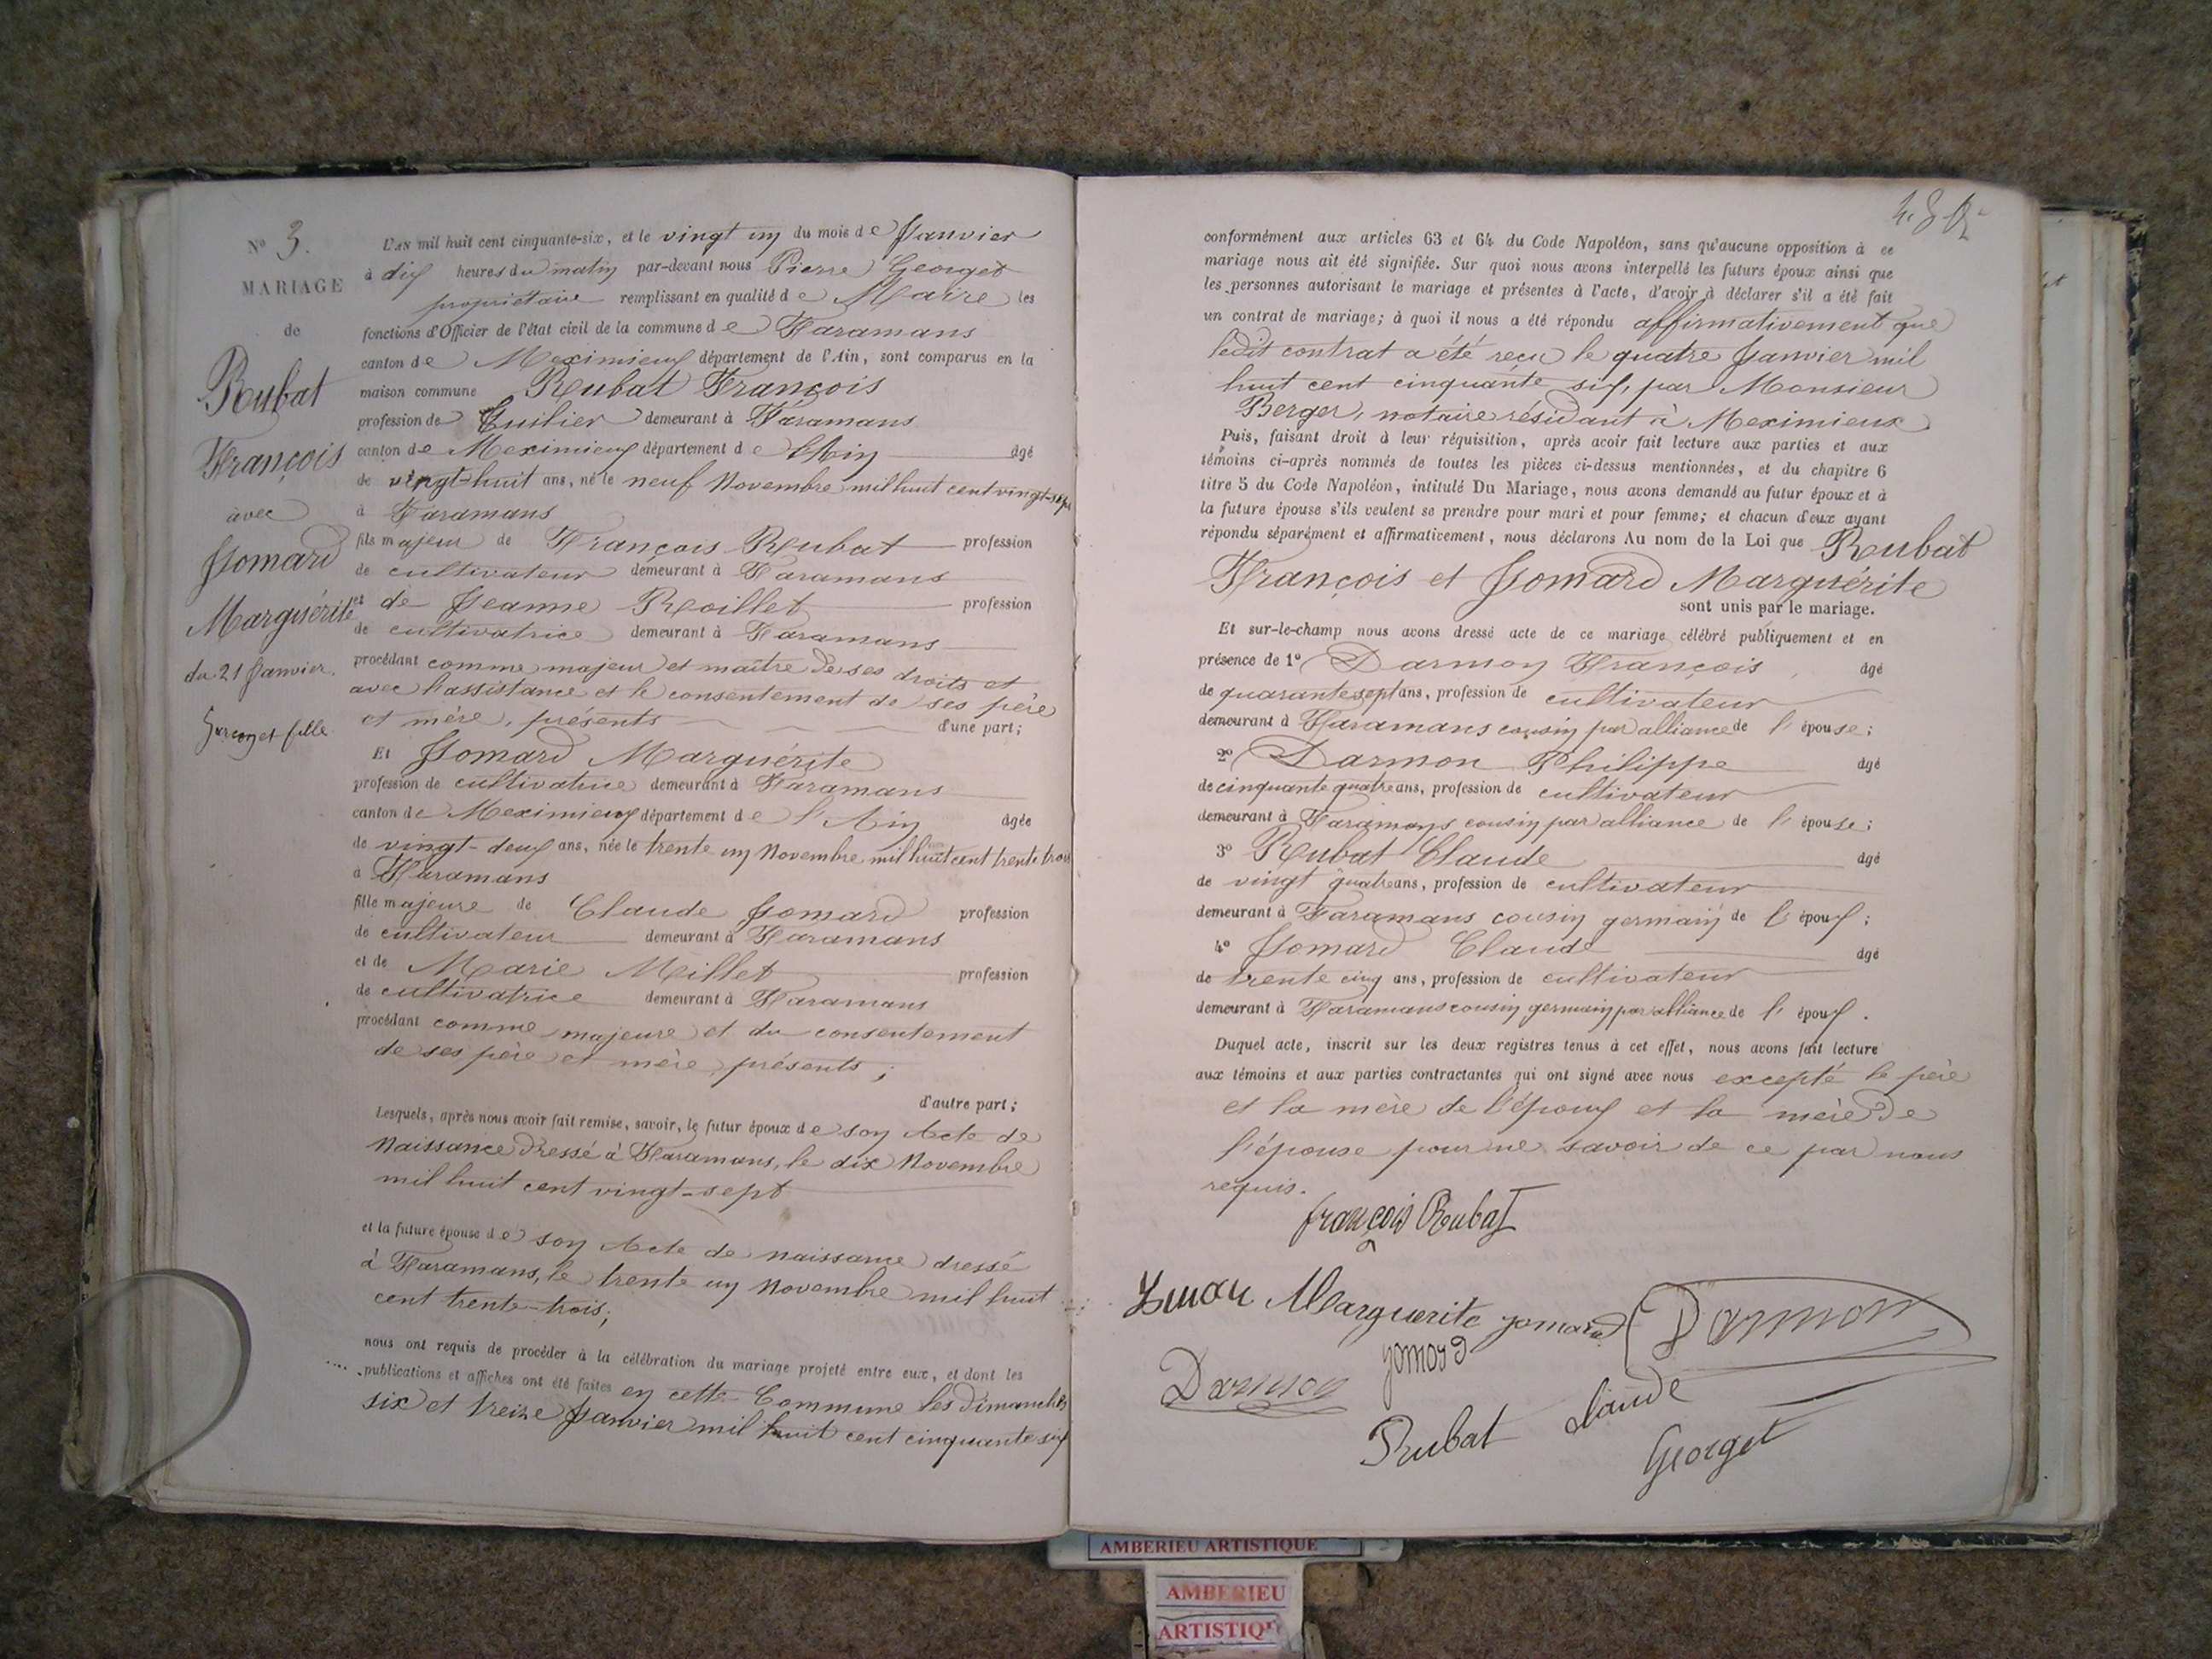 N° 3.
MARIAGE
de
Rubat
François
avec
Jomard
Marguérite
du 21 Janvier.
Garçon et fille
L'AN mil huit cent cinquante-six, et le vingt un du mois de Janvier
à dix heures du matin par-devant nous Pierre Georget
propriétaire remplissant en qualité de Maire les
fonctions d'Officier de l'état civil de la commune de Faramans
canton de Meximieux département de l'Ain, sont comparus en la
maison commune Rubat François
profession de Tuilier demeurant à Faramans
canton de Meximieux département de l'Ain âgé
de vingt-huit ans, né le neuf Novembre mil huit cent vingt-sept
à Faramans
fils majeur de François Rubat profession
de cultivateur demeurant à Faramans
et de Jeanne Roillet profession
de cultivatrice demeurant à Faramans
procédant comme majeur et maître de ses droits et
avec l'assistance et le consentement de ses père
et mère, présents d'une part;
Et Jomard Marguérite
profession de cultivatrice demeurant à Faramans
canton de Meximieux département de l'Ain âgée
de vingt-deux ans, née le trente un Novembre mil huit cent trente trois
à Faramans
fille majeure de Claude Jomard profession
de cultivateur demeurant à Faramans
et de Marie Millet profession
de cultivatrice demeurant à Faramans
procédant comme majeure et du consentement
de ses père et mère, présents;
d'autre part;
Lesquels, après nous avoir fait remise, savoir, le futur époux de son Acte de
Naissance dressé à Faramans, le dix Novembre
mil huit cent vingt-sept
et la future épouse de son Acte de naissance dressé
à Faramans, le trente un Novembre mil huit
cent trente-trois;
nous ont requis de procéder à la célébration du mariage projeté entre eux, et dont les
publications et affiches ont été faites en cette Commune les dimanches
six et treize Janvier mil huit cent cinquante six
conformément aux articles 63 et 64 du Code Napoléon, sans qu'aucune opposition à ce
mariage nous ait été signifiée. Sur quoi nous avons interpellé les futurs époux ainsi que
les personnes autorisant le mariage et présentes à l'acte, d'avoir à déclarer s'il a été fait
un contrat de mariage; à quoi il nous a été répondu affirmativement que
ledit contrat a été reçu le quatre Janvier mil
huit cent cinquante six, par Monsieur
Berger, notaire résidant à Meximieux
Puis, faisant droit à leur réquisition, après avoir fait lecture aux parties et aux
témoins ci-après nommés de toutes les pièces ci-dessus mentionnées, et du chapitre 6
titre 5 du Code Napoléon, intitulé Du Mariage, nous avons demandé au futur époux et à
la future épouse s'ils veulent se prendre pour mari et pour femme; et chacun d'eux ayant
répondu séparément et affirmativement, nous déclarons Au nom de la Loi que Rubat
François et Jomard Marguérite
sont unis par le mariage.
Et sur-le-champ nous avons dressé acte de ce mariage célébré publiquement et en
présence de 1° Darmon François, âgé
de quarante sept ans, profession de cultivateur
demeurant à Faramans cousin par alliance de l'épouse;
2° Darmon Philippe âgé
de cinquante quatre ans, profession de cultivateur
demeurant à Faramans cousin par alliance de l'épouse;
3° Rubat Claude âgé
de vingt quatre ans, profession de cultivateur
demeurant à Faramans cousin germain de l'époux;
4° Jomard Claude âgé
de trente cinq ans, profession de cultivateur
demeurant à Faramans cousin germain par alliance de l'époux.
Duquel acte, inscrit sur les deux registres tenus à cet effet, nous avons fait lecture
aux témoins et aux parties contractantes qui ont signé avec nous excepté le père
et la mère de l'époux et la mère de
l'épouse pour ne savoir de ce par nous
requis.
françois Rubat
Marguerite jomard Darmon
Darmon jomard
Rubat claude
Georget
AMBERIEU ARTISTIQUE
AMBERIEU
ARTISTIQU